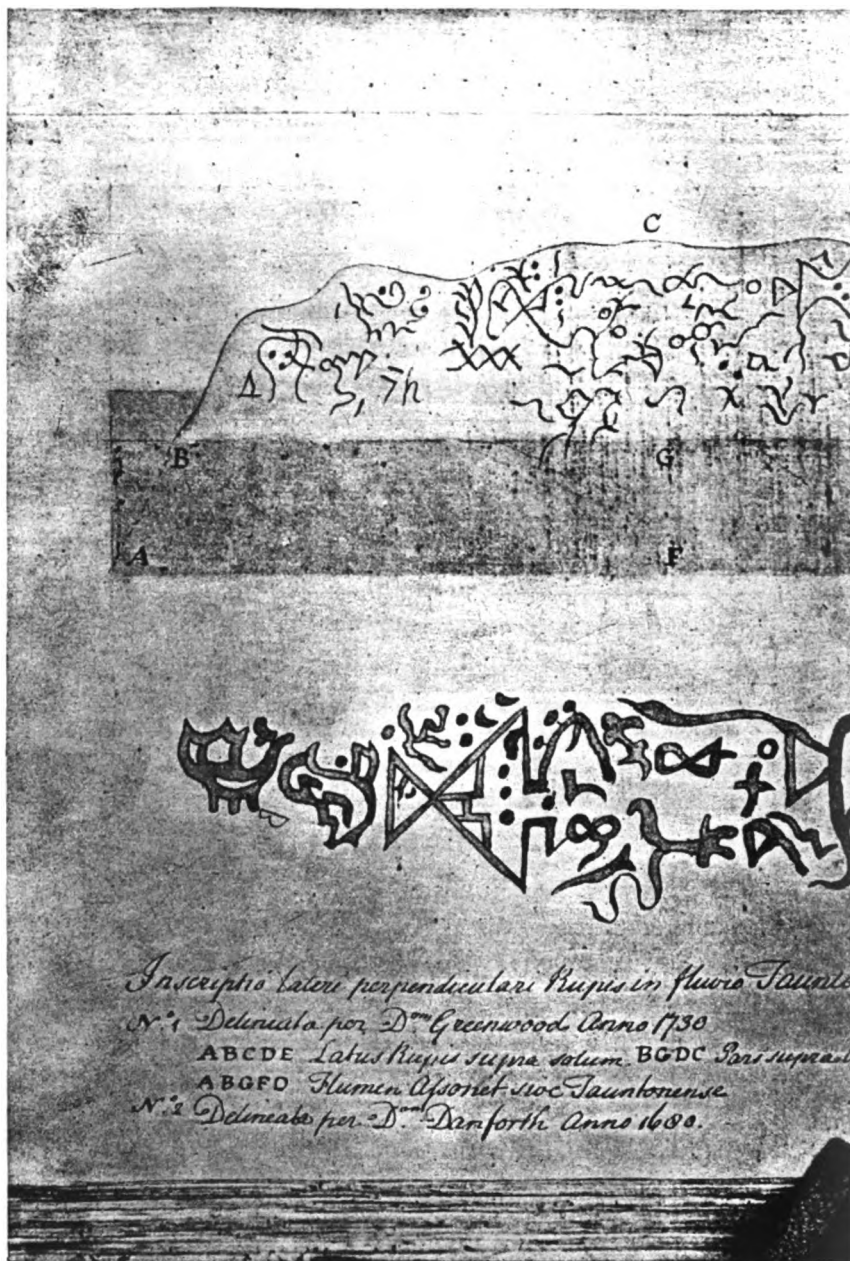 C
B G
A F
Inscriptio lateri perpendiculari Rupis in fluvio
No. 1 Delineata per Dom Greenwood Anno 1730
ABCDE Latus Rupis supra solum. BGDC Pars supra
ABGFD Flumen Assonet sive Tauntonense
No. 2 Delineata per Dom Danforth Anno 1680.